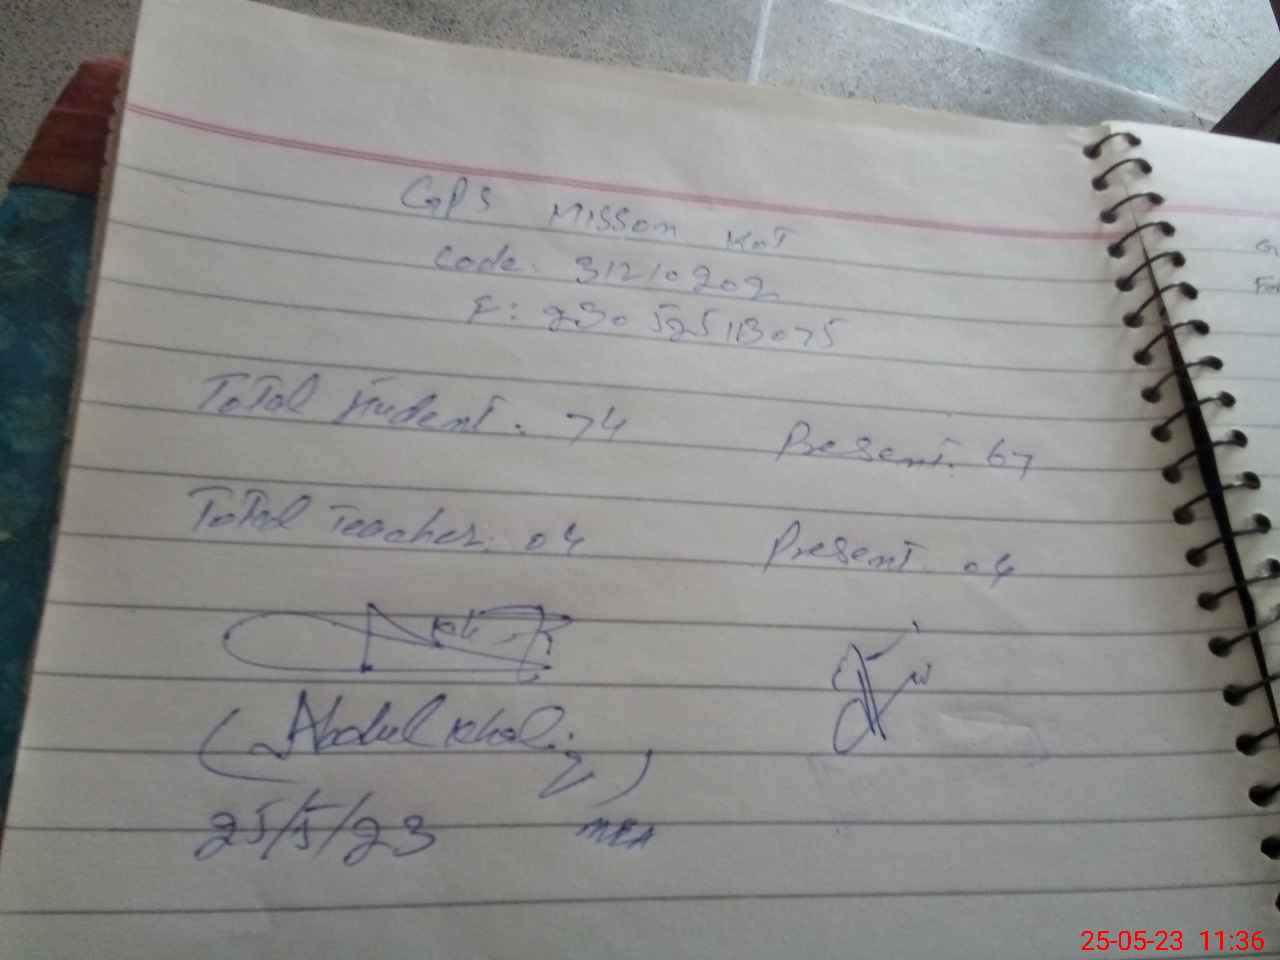 GPS Misson Kot
Code. 31210202
F: 230525113075
Total student. 74 Present. 67
Total Teacher. 04 Present. 04
(Abdul Khaliq)
25/5/23 MEA
25-05-23 11:36